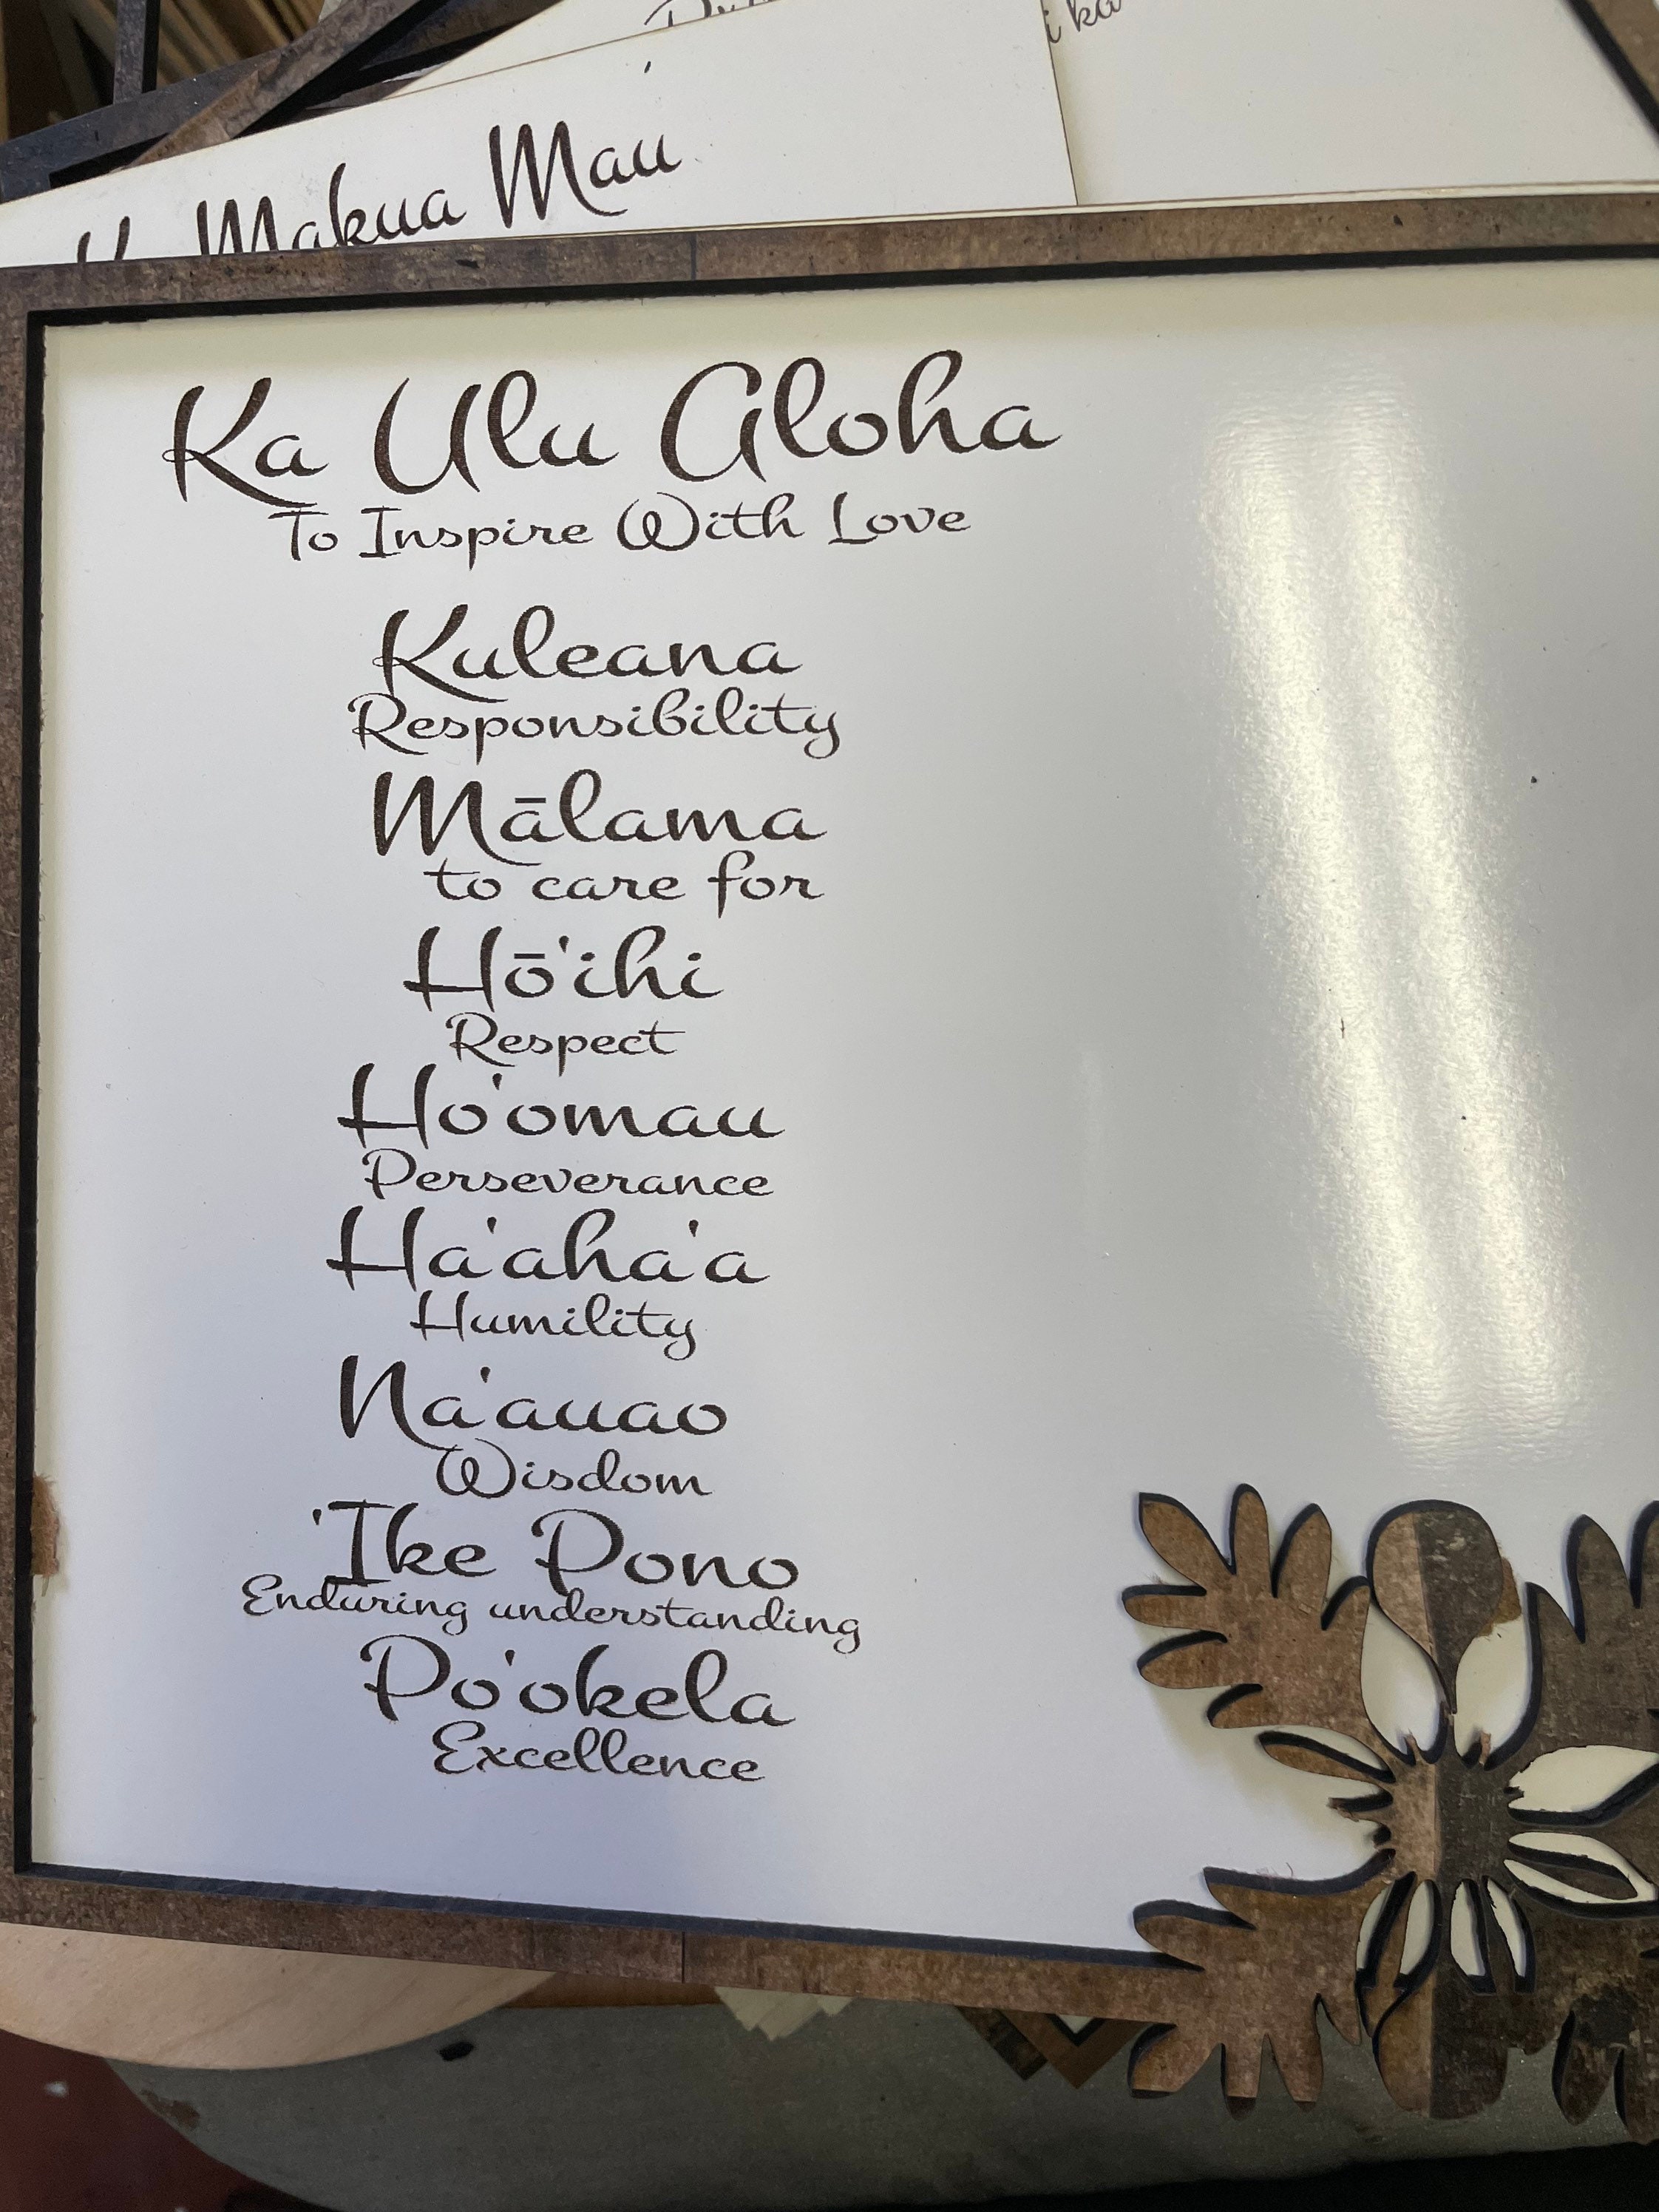 i ka
Makua Mau
Ka Ulu Aloha
To Inspire With Love
Kuleana
Responsibility
Mālama
to care for
Hō'ihi
Respect
Ho'omau
Perseverance
Ha'aha'a
Humility
Na'auao
Wisdom
'Ike Pono
Enduring understanding
Po'okela
Excellence